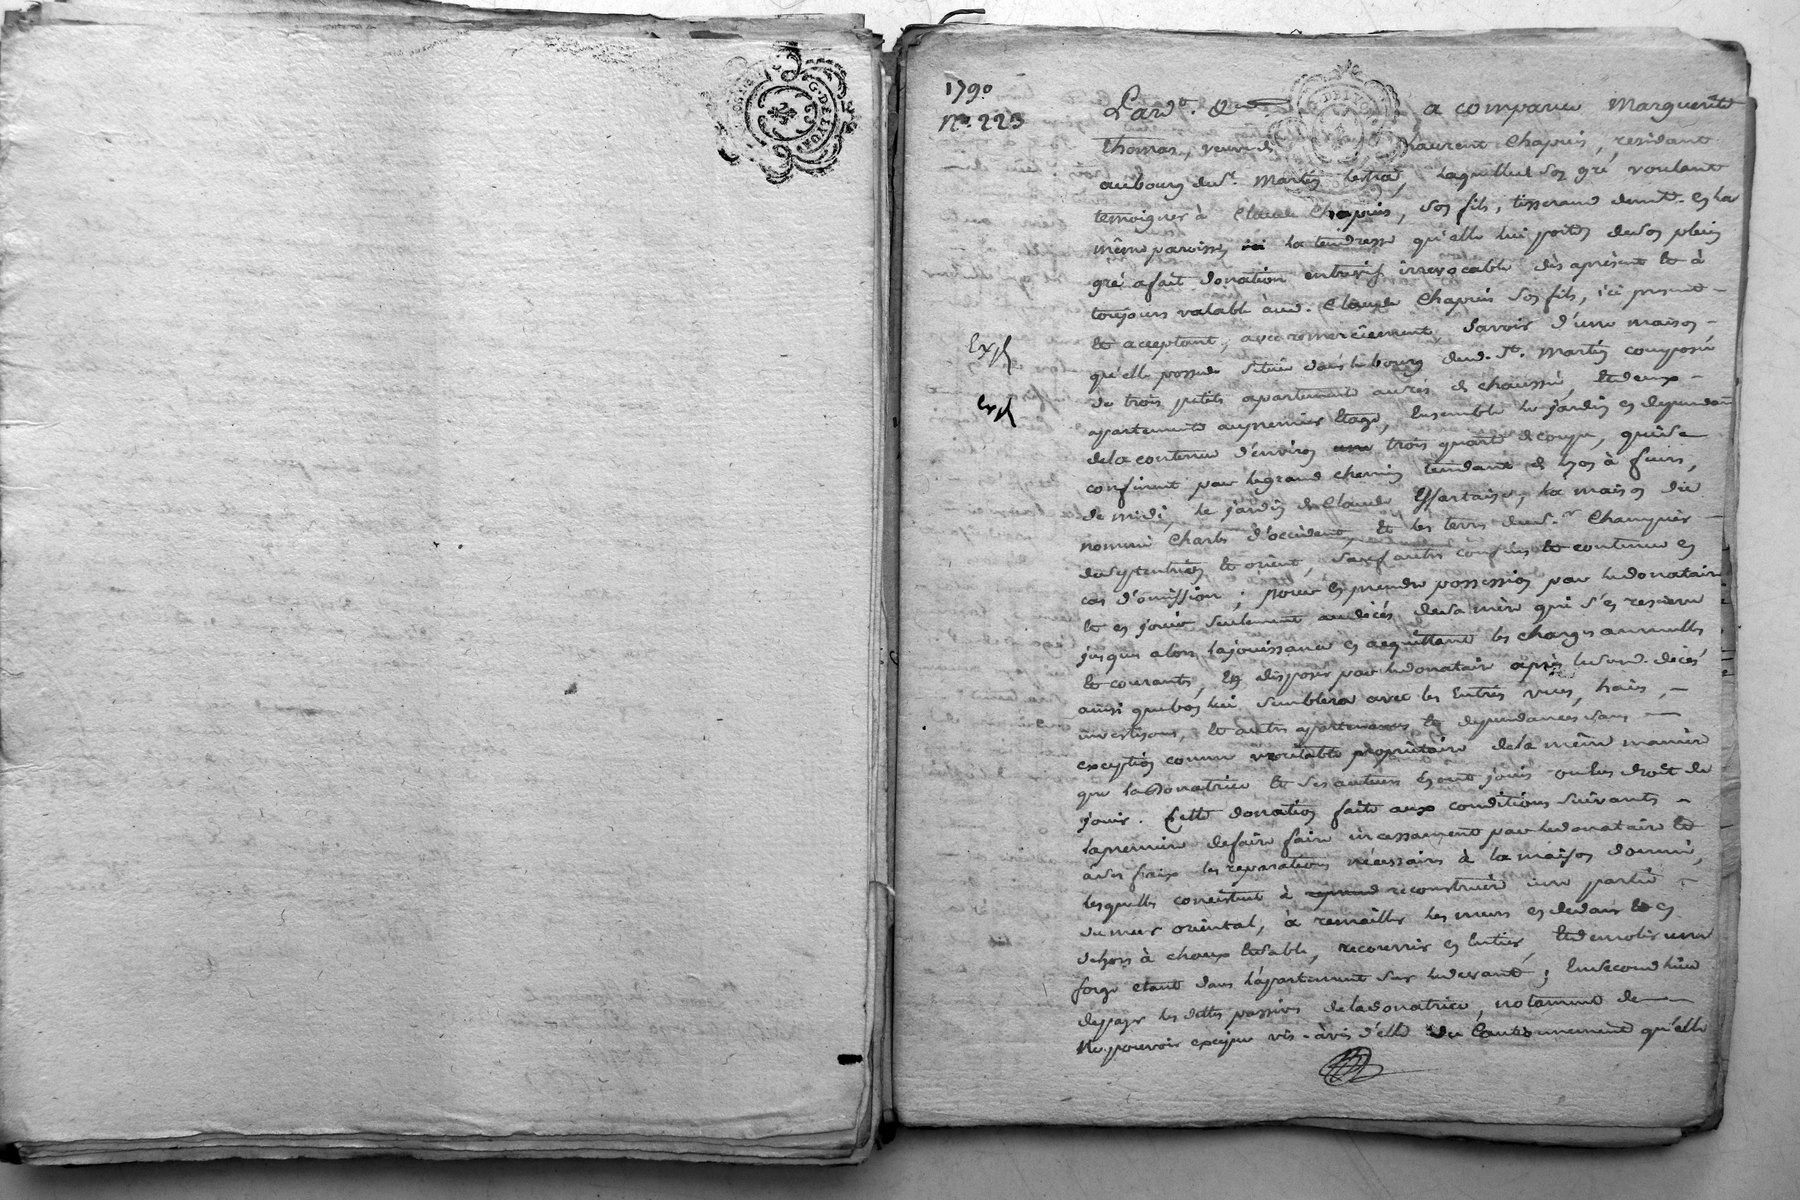 G. DE LYON
1790
No. 223
Pard.t &c a comparu Marguerite
thomas, veuve de Laurent Chapuis, residant
au bourg de St. Martin lestra, laquelle de son gré voulant
temoigner à Claude Chapuis, son fils, tisserand demt. en la
même paroisse la tendresse qu'elle lui porte, de son plein
gré a fait donation entrevifs irrevocable dès aprésent et à
toujours valable aud. Claude Chapuis son fils, ici present
et acceptant, avec remerciement, savoir d'une maison
Expé
qu'elle possede située dans le bourg dud. St. Martin composée
de trois petits apartements au rès de chaussée, et deux
Expé
apartements au premier etage, Ensemble le jardin en dependant
de la contenue d'environ trois quarts de coupe, qui se
confinent par le grand chemin tendant de Lyon à feurs,
de midi, le jardin de Claude Essartaise, la maison du
nommé Charles d'occident, et les terres dud. Sr.
de septentrion et orient, sauf autres confins et contenue en
cas d'omission; pour en prendre possession par le donataire
et en jouir seulement au décès de sa mère qui s'en reserve
jusques alors la jouissance en acquittant les charges annuelles
et courantes, et disposer par le donataire après le sud. décès
ainsi que bon lui semblera avec les Entrées vues, haies,
investisons, et autres apartenances et dependances sans
exception comme veritable propriétaire de la même manière
que la donatrice et ses auteurs en ont joui ou eu droit de
jouir. Cette donation faite aux conditions suivantes
la premiere de faire faire incessament par le donataire et
à ses fraix les reparations nécessaires à la maison donnée,
lesquelles consistent à reconstruire une partie
du mur oriental, à remailler les murs en dedans et en
dehors à chaux et sable, recouvrir en entier, et demolir une
forge etant dans l'appartement sur le devant; En second lieu
de payer les dettes passives de la donatrice, notament de
ne pouvoir exciper vis-àvis d'elle du Cautionnement qu'elle